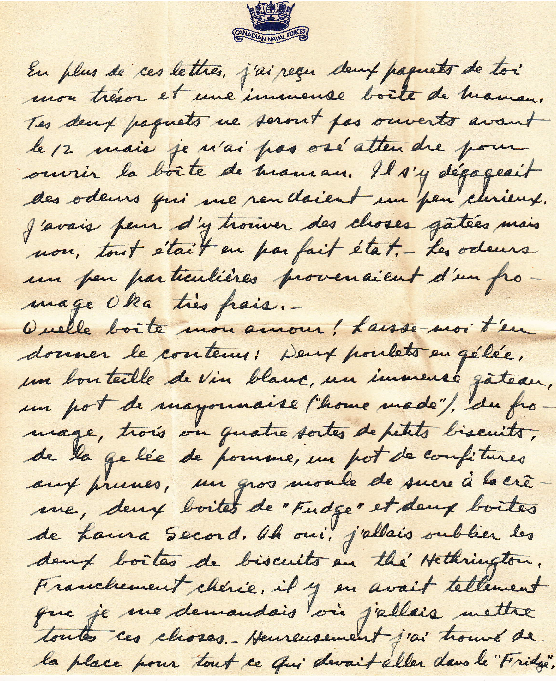 CANADIAN NAVAL FORCES
En plus de ces lettres, j'ai reçu deux paquets de toi
mon trésor et une immense boîte de Maman.
Tes deux paquets ne seront pas ouverts avant
le 12 mais je n'ai pas osé attendre pour
ouvrir la boîte de Maman. Il s'y dégageait
des odeurs qui me rendaient un peu curieux.
J'avais peur d'y trouver des choses gâtées mais
non, tout était en parfait état. - Les odeurs
un peu particulières provenaient d'un fro-
mage Oka très frais. -
Quelle boîte mon amour! Laisse-moi t'en
donner le contenu: Deux poulets en gélée,
un bouteille de vin blanc, un immense gâteau,
un pot de mayonnaise ("home made"), du fro-
mage, trois ou quatre sortes de petits biscuits,
de la gelée de pomme, un pot de confitures
aux prunes, un gros moule de sucre à la crê-
me, deux boîtes de "Fudge" et deux boîtes
de Laura Secord. Ah oui, j'allais oublier les
deux boîtes de biscuits en thé Hethrington.
Franchement chérie, il y en avait tellement
que je me demandais où j'allais mettre
toutes ces choses. - Heureusement j'ai trouvé de
la place pour tout ce qui devait aller dans le "Fridge".